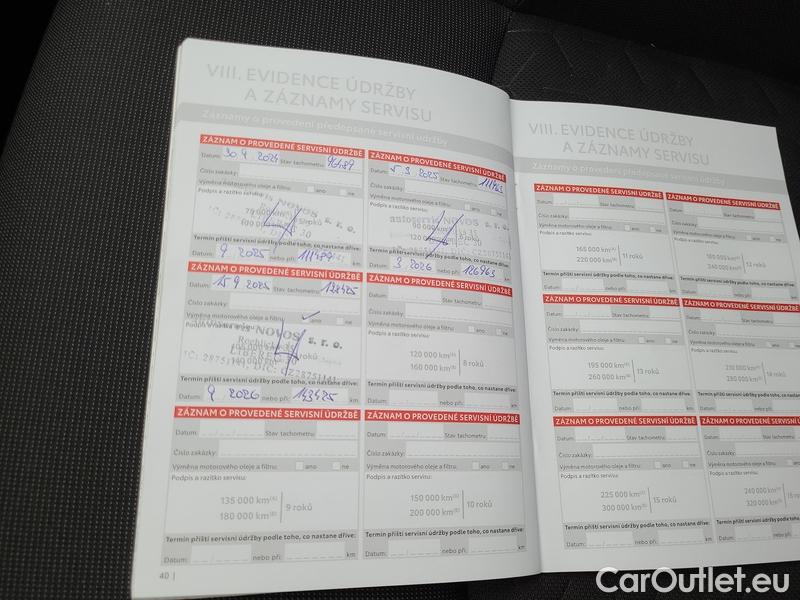 VIII. EVIDENCE ÚDRŽBY
A ZÁZNAMY SERVISU
Záznamy o provedení předepsané servisní údržby
ZÁZNAM O PROVEDENÉ SERVISNÍ ÚDRŽBĚ
Datum: 30 4 2024 Stav tachometru: 96489
Číslo zakázky:
Výměna motorového oleje a filtru: ano ne
Podpis a razítko servisu:
Termín příští servisní údržby podle toho, co nastane dříve:
9 2025 111489
ZÁZNAM O PROVEDENÉ SERVISNÍ ÚDRŽBĚ
Datum: 5 3 2025 Stav tachometru: 111963
Číslo zakázky:
Výměna motorového oleje a filtru: ano ne
Podpis a razítko servisu:
autoservis NOVOS s. r. o.
90 000 km
120 000 km
Termín příští servisní údržby podle toho, co nastane dříve:
3 2026 126963 km
ZÁZNAM O PROVEDENÉ SERVISNÍ ÚDRŽBĚ
Datum: 15 9 2025 Stav tachometru: 128425
Číslo zakázky:
Výměna motorového oleje a filtru: ano ne
NOVOS s. r. o.
LIBEREC 30
IČ: 28751141, DIČ: CZ28751141
Termín příští servisní údržby podle toho, co nastane dříve:
9 2026 143425 km
ZÁZNAM O PROVEDENÉ SERVISNÍ ÚDRŽBĚ
Datum: Stav tachometru:
Číslo zakázky:
Výměna motorového oleje a filtru: ano ne
Podpis a razítko servisu:
120 000 km(A)
160 000 km(B)
8 roků
Termín příští servisní údržby podle toho, co nastane dříve:
Datum: nebo při: km
ZÁZNAM O PROVEDENÉ SERVISNÍ ÚDRŽBĚ
Datum: Stav tachometru:
Číslo zakázky:
Výměna motorového oleje a filtru: ano ne
Podpis a razítko servisu:
135 000 km(A)
180 000 km(B)
9 roků
Termín příští servisní údržby podle toho, co nastane dříve:
Datum: nebo při: km
ZÁZNAM O PROVEDENÉ SERVISNÍ ÚDRŽBĚ
Datum: Stav tachometru:
Číslo zakázky:
Výměna motorového oleje a filtru: ano ne
Podpis a razítko servisu:
150 000 km(A)
200 000 km(B)
10 roků
Termín příští servisní údržby podle toho, co nastane dříve:
Datum: nebo při: km
40 |
VIII. EVIDENCE ÚDRŽBY
A ZÁZNAMY SERVISU
Záznamy o provedení předepsané servisní údržby
ZÁZNAM O PROVEDENÉ SERVISNÍ ÚDRŽBĚ
Datum: Stav tachometru:
Číslo zakázky:
Výměna motorového oleje a filtru: ano ne
Podpis a razítko servisu:
165 000 km(A)
220 000 km(B)
11 roků
Termín příští servisní údržby podle toho, co nastane dříve:
Datum: nebo při: km
ZÁZNAM O PROVEDENÉ SERVISNÍ ÚDRŽBĚ
Datum: Stav tachometru:
Číslo zakázky:
Výměna motorového oleje a filtru:
Podpis a razítko servisu:
180 000 km(A)
240 000 km(B)
12 roků
ZÁZNAM O PROVEDENÉ SERVISNÍ ÚDRŽBĚ
Datum: Stav tachometru:
Číslo zakázky:
Výměna motorového oleje a filtru: ano ne
Podpis a razítko servisu:
195 000 km(A)
260 000 km(B)
13 roků
Termín příští servisní údržby podle toho, co nastane dříve:
Datum: nebo při: km
ZÁZNAM O PROVEDENÉ SERVISNÍ ÚDRŽBĚ
Datum: Stav tachometru:
Číslo zakázky:
Výměna motorového oleje a filtru:
Podpis a razítko servisu:
14 roků
ZÁZNAM O PROVEDENÉ SERVISNÍ ÚDRŽBĚ
Datum: Stav tachometru:
Číslo zakázky:
Výměna motorového oleje a filtru: ano ne
Podpis a razítko servisu:
225 000 km(A)
300 000 km(B)
15 roků
Termín příští servisní údržby podle toho, co nastane dříve:
Datum: nebo při: km
ZÁZNAM O PROVEDENÉ SERVISNÍ ÚDRŽBĚ
Datum: Stav tachometru:
Číslo zakázky:
Výměna motorového oleje a filtru:
Podpis a razítko servisu:
240 000 km(A)
320 000 km(B)
CarOutlet.eu